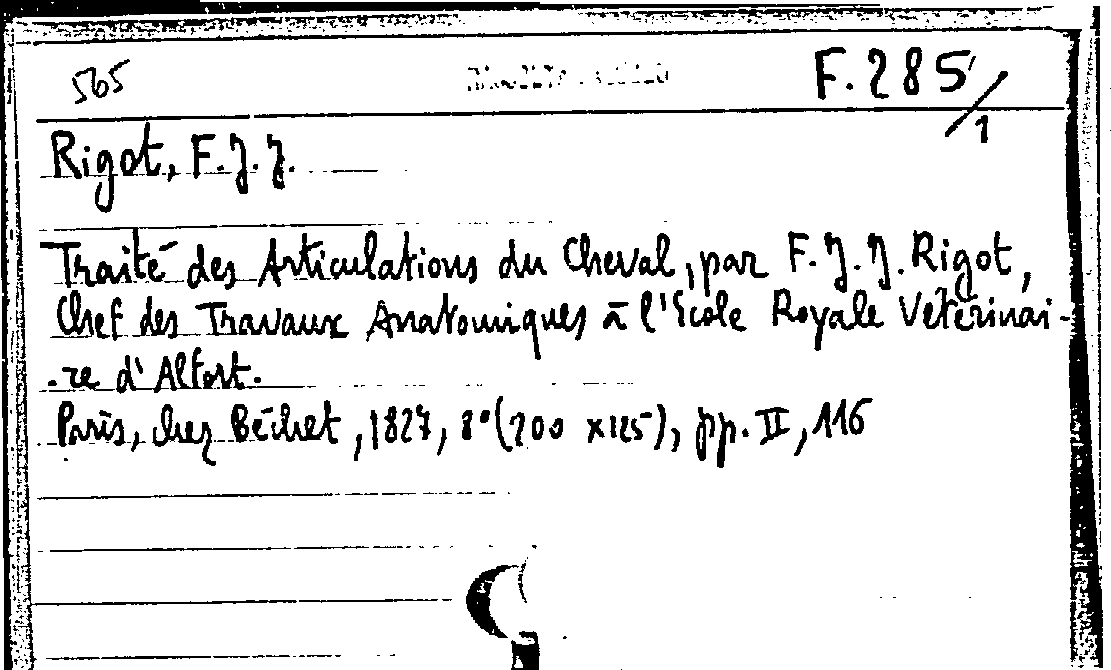 565
F.285/1
Rigot, F.J.J.
Traité des Articulations du Cheval, par F.J.J. Rigot,
Chef des Travaux Anatomiques à l'Ecole Royale Vétérinai-
-re d'Alfort.
Paris, chez Béchet, 1827, 8° (200 x125), pp. II, 116